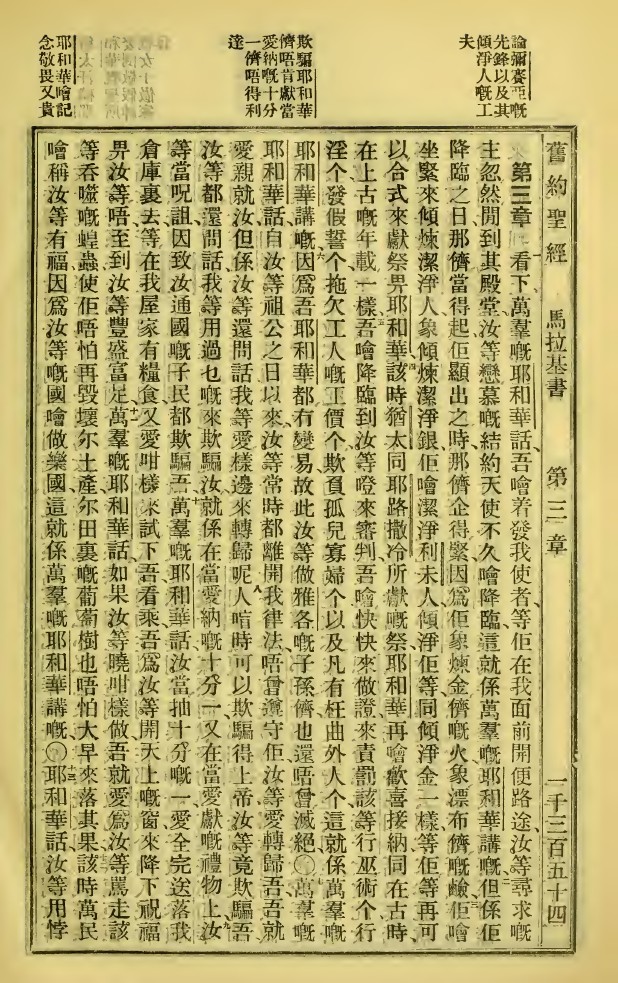 論彌賽亞嘅
先鋒以及其
傾淨人嘅工
夫
欺騙耶和華
儕唔肯獻當
愛納嘅十分
一儕唔得利
達
耶和華噲記
念敬畏又貴
舊約聖經 馬拉基書 第三章 一千三百五十四
第三章 一看下、萬羣嘅耶和華話、吾噲着發我使者等佢在我面前開便路途、汝等尋求嘅
主忽然間到其殿堂、汝等戀慕嘅結約天使不久噲降臨、這就係萬羣嘅耶和華講嘅、但係佢
降臨之日那儕當得起、佢顯出之時那儕企得緊、因爲佢象煉金儕嘅火、象漂布儕嘅鹼、佢噲
坐緊來傾煉潔淨人、象傾煉潔淨銀、佢噲潔淨利未人、傾淨佢等同傾淨金一樣、等佢等再可
以合式來獻祭畀耶和華、該時猶太同耶路撒冷所獻嘅祭、耶和華再噲歡喜接納、同在古時、
在上古嘅年載一樣、吾噲降臨到汝等噔來審判、吾噲快快來做證、來責罰該等行巫術个、行
淫个、發假誓个、拖欠工人嘅工價个、欺負孤兒寡婦个、以及凡有枉曲外人个、這就係萬羣嘅
耶和華講嘅、六因爲吾耶和華都冇變易、故此汝等做雅各嘅子孫儕也還唔曾滅絕、〇萬羣嘅
耶和華話、自汝等祖公之日以來、汝等常時都離開我律法、唔曾遵守佢、汝等愛轉歸吾、吾就
愛親就汝、但係汝等還問話、我等愛樣邊來轉歸呢、八人啱時可以欺騙得上帝、汝等竟欺騙吾、
汝等都還問話、我等用過乜嘅來欺騙汝、就係在當愛納嘅十分一、又在當愛獻嘅禮物上、汝
等當呪詛、因致汝通國嘅子民都欺騙吾、萬羣嘅耶和華話、汝當抽十分嘅一、愛全完送落我
倉庫裏去、等在我屋家有糧食、又愛咁樣來試下吾、看乘吾爲汝等開天上嘅窗、來降下祝福
畀汝等、唔至到汝等豐盛富足、十一萬羣嘅耶和華話、如果汝等曉咁樣做、吾就愛爲汝等罵走該
等吞噬嘅蝗蟲、使佢唔怕再毀壞尔土產、尔田裏嘅葡萄樹也唔怕大早來落其果、該時萬民
噲稱汝等有福、因爲汝等嘅國噲做樂國、這就係萬羣嘅耶和華講嘅、〇十三耶和華話、汝等用悖